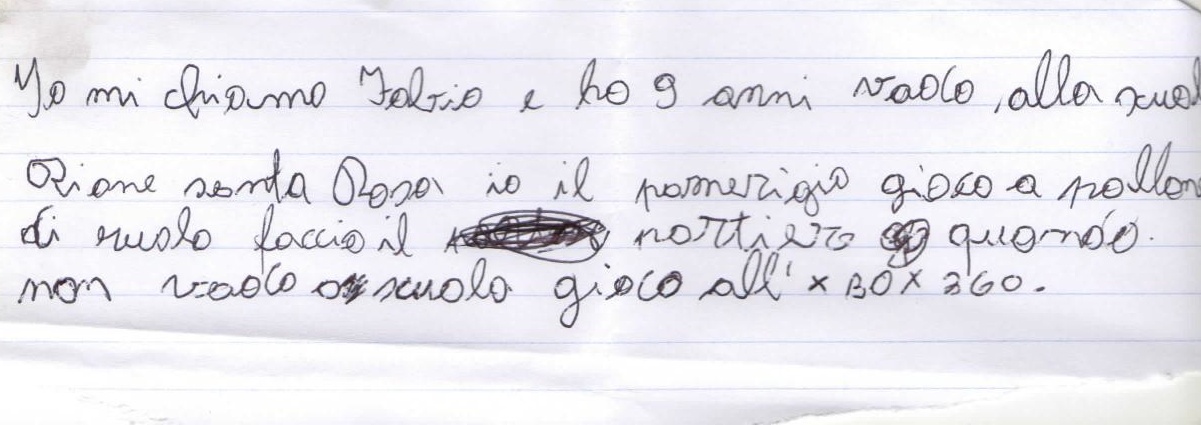 Io mi chiamo Fabrio e ho 9 anni vado, alla scuol
Rione santa Rosa io il pomerigio gioco a pallon
di ruolo faccio il portiero quando.
non vado a scuola gioco all' x BOX 360.